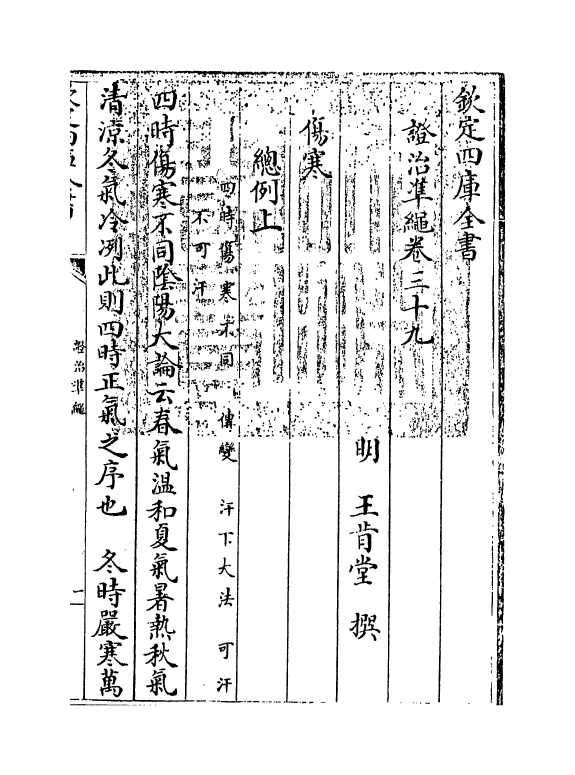 欽定四庫全書
證治準繩卷三十九
明 王肯堂 撰
傷寒
總例上
四時傷寒不同 傳變 汗下大法 可汗
不可汗
四時傷寒不同陰陽大論云春氣溫和夏氣暑熱秋氣
清涼冬氣冷冽此則四時正氣之序也 冬時嚴寒萬
證治準繩